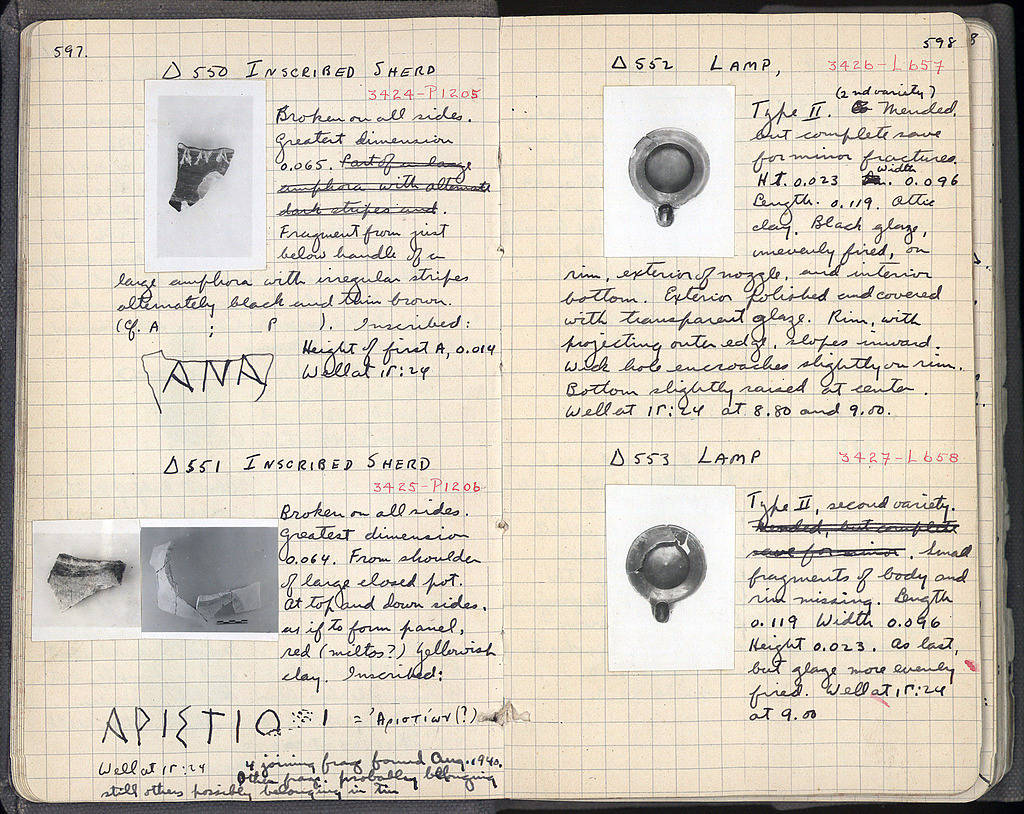 597.
Δ 550 INSCRIBED SHERD
3424-P1205
Broken on all sides.
Greatest dimension
0.065. Part of a large
amphora with alternate
dark stripes and.
Fragment from just
below handle of a
large amphora with irregular stripes
alternately black and thin brown.
(Cf. A ; P ). Inscribed:
ΑΝΑ
Height of first A, 0.014
Well at ΙΕ:24
Δ 551 INSCRIBED SHERD
3425-P1206
Broken on all sides.
Greatest dimension
0.064. From shoulder
of large closed pot.
At top and down sides,
as if to form panel,
red (miltos?) Yellowish
clay. Inscribed:
ΑΡΙΣΤΙΟ Ι = Ἀριστίων(?)
Well at ΙΕ:24
4 joining frags found Aug. 1940.
Other frags. probably belonging
still others possibly belonging in tin
598
Δ 552 LAMP,
3426-L657
(2nd variety)
Type II. Mended,
but complete save
for minor fractures.
Ht. 0.023 Width 0.096
Length. 0.119. Attic
clay. Black glaze,
unevenly fired, on
rim, exterior of nozzle, and interior
bottom. Exterior polished and covered
with transparent glaze. Rim, with
projecting outer edge, slopes inward.
Wick hole encroaches slightly on rim.
Bottom slightly raised at center.
Well at ΙΕ:24 at 8.80 and 9.00.
Δ 553 LAMP
3427-L658
Type II, second variety.
Mended, but complete
save for minor. Small
fragments of body and
rim missing. Length
0.119 Width 0.096
Height 0.023. As last,
but glaze more evenly
fired. Well at ΙΕ:24
at 9.00